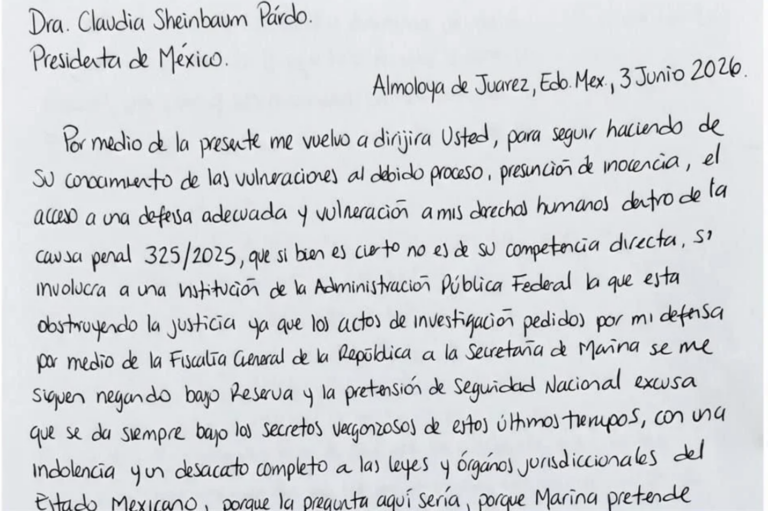 Dra. Claudia Sheinbaum Párdo.
Presidenta de México.
Almoloya de Juarez, Edo. Mex., 3 Junio 2026.
Por medio de la presente me vuelvo a dirijira Usted, para seguir haciendo de
su conocimiento de las vulneraciones al debido proceso, presunción de inocencia, el
acceso a una defensa adecuada y vulneración a mis derechos humanos dentro de la
causa penal 325/2025, que si bien es cierto no es de su competencia directa, si
involucra a una institución de la Administración Pública Federal la que esta
obstruyendo la justicia ya que los actos de investigación pedidos por mi defensa
por medio de la Fiscalía General de la República a la Secretaría de Marina se me
siguen negando bajo Reserva y la pretensión de Seguridad Nacional excusa
que se da siempre bajo los secretos vergonzosos de estos últimos tiempos, con una
indolencia y un desacato completo a las leyes y órganos jurisdiccionales del
Estado Mexicano, porque la pregunta aquí sería, porque Marina pretende